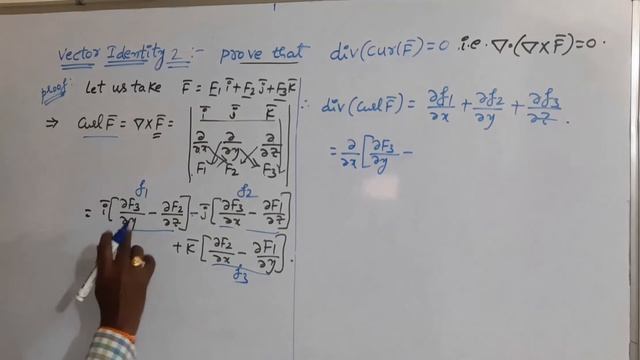 Vector Identity 2 :- prove that div(curl F̄) = 0 i.e. ∇·(∇×F̄) = 0.
proof: Let us take F̄ = F₁ ī + F₂ j̄ + F₃ k̄
⇒ Curl F̄ = ∇×F̄ = | ī j̄ k̄ |
| ∂/∂x ∂/∂y ∂/∂z |
| F₁ F₂ F₃ |
f₁ f₂
= ī [∂F₃/∂y − ∂F₂/∂z] − j̄ [∂F₃/∂x − ∂F₁/∂z]
+ k̄ [∂F₂/∂x − ∂F₁/∂y].
f₃
∴ div(curl F̄) = ∂f₁/∂x + ∂f₂/∂y + ∂f₃/∂z.
= ∂/∂x [∂F₃/∂y −